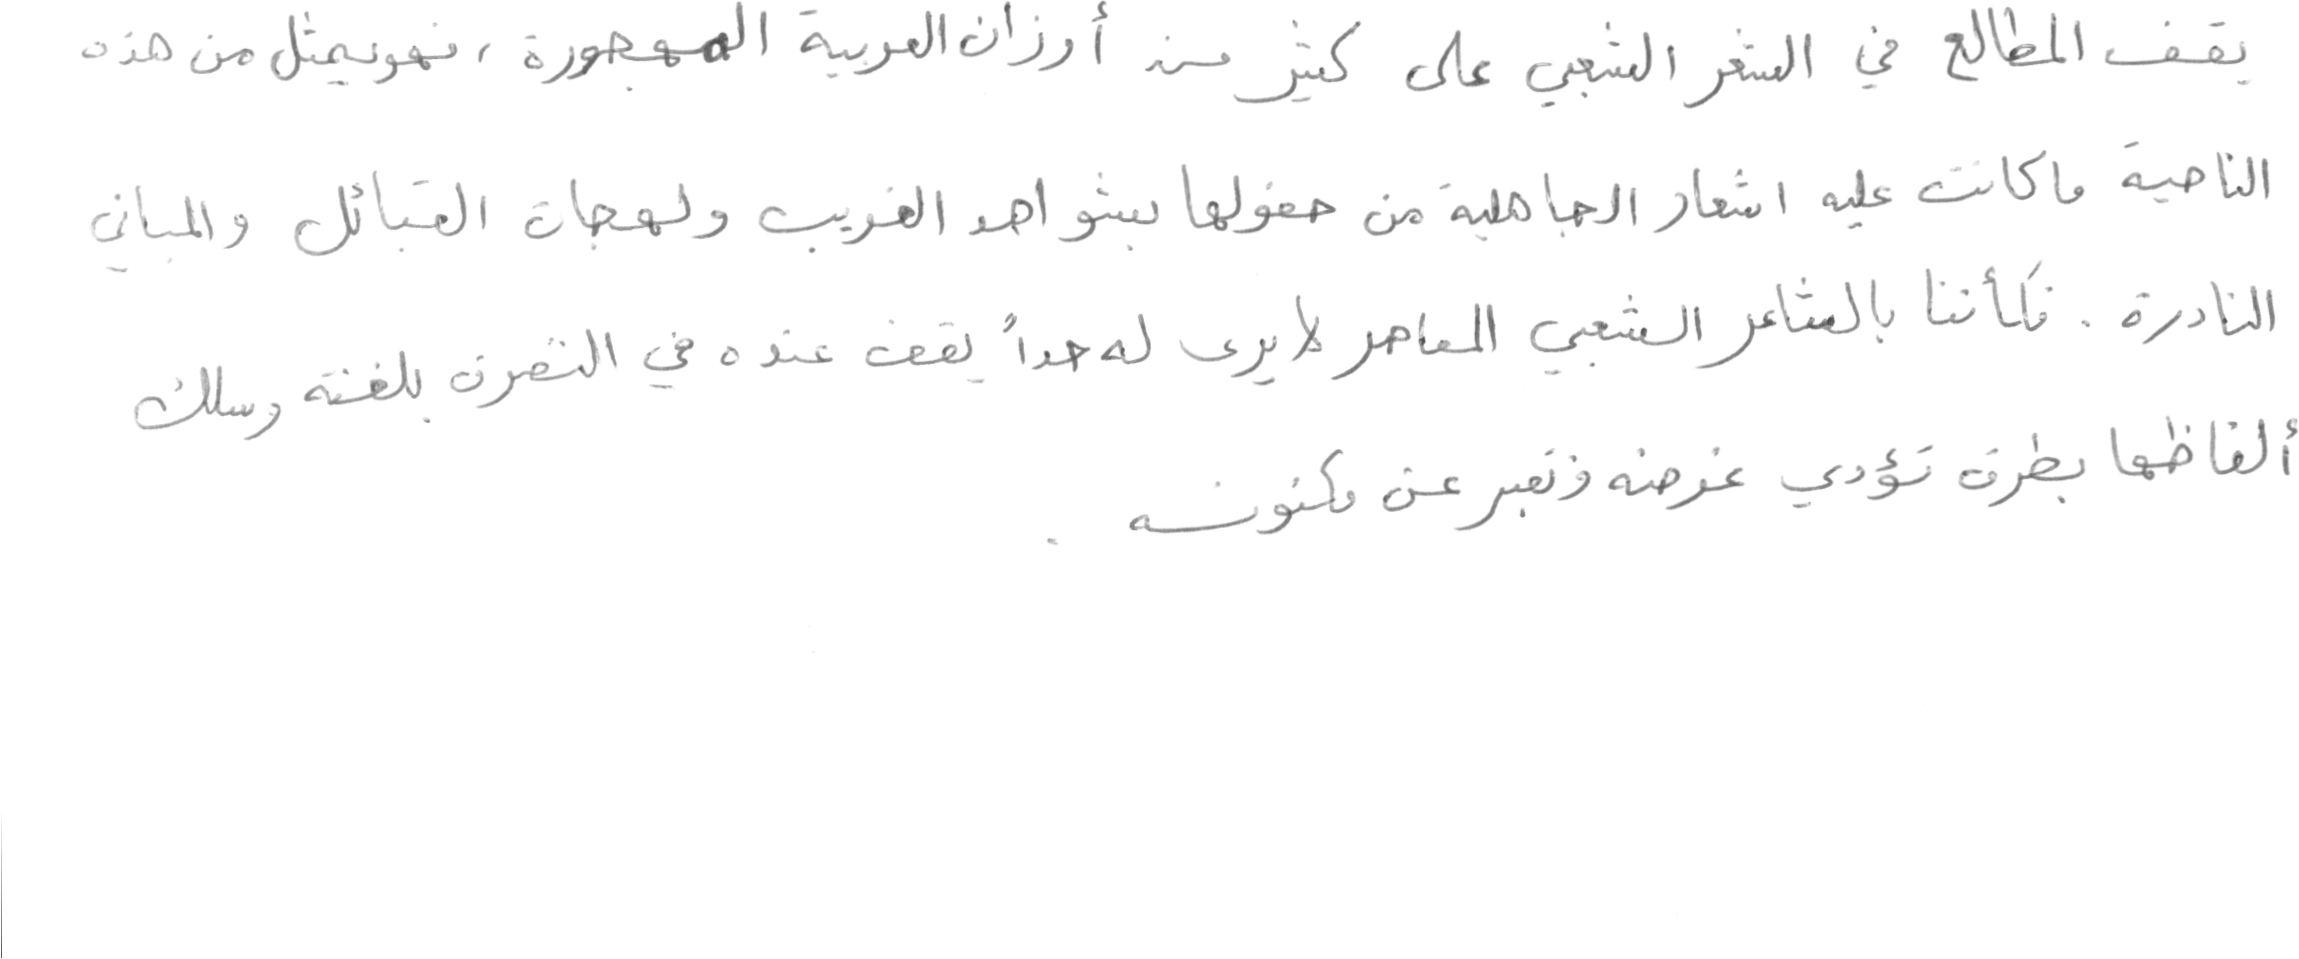 يقف المطالع في الشعر الشعبي على كثير من أوزان العربية المهجورة ، فهو يمثل من هذه
الناحية ما كانت عليه اشعار الجاهلية من حفولها بشواهد الغريب ولهجات القبائل والمباني
النادرة . فكأننا بالشاعر الشعبي المعاصر لا يرى له حداً يقف عنده في التصرف بلغته وسلك
ألفاظها بطرق تؤدي غرضه وتعبر عن مكنونه .